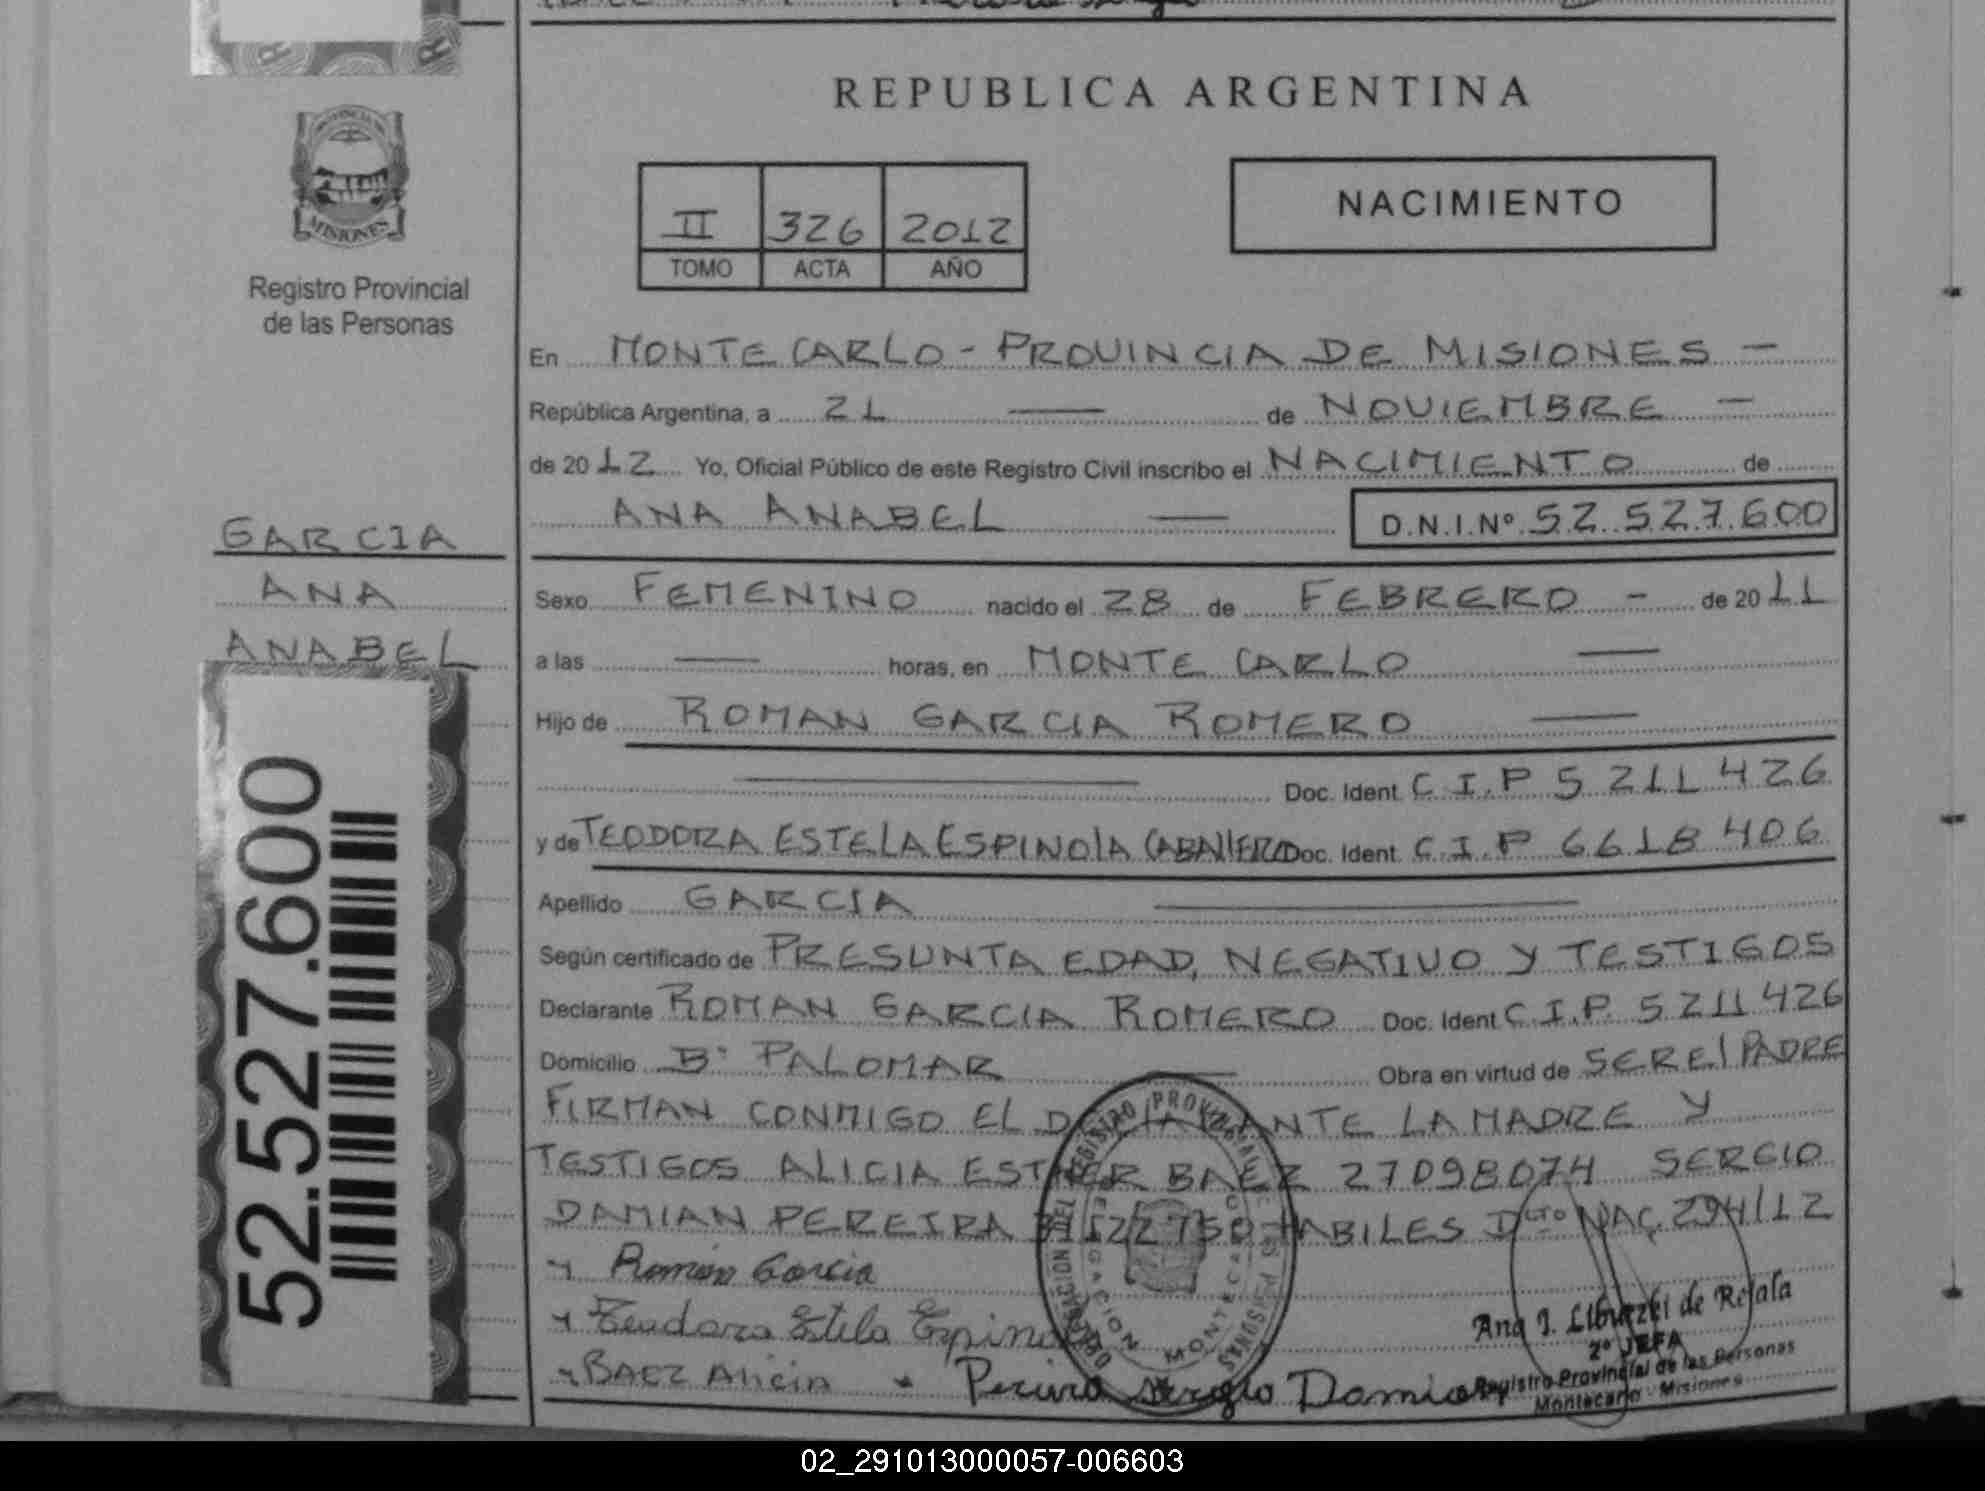 REPUBLICA ARGENTINA
PROVINCIA DE
MISIONES
Registro Provincial
de las Personas
II 326 2012
TOMO ACTA AÑO
NACIMIENTO
En MONTE CARLO - PROVINCIA DE MISIONES -
República Argentina, a 21 — de NOVIEMBRE -
de 2012 Yo, Oficial Público de este Registro Civil inscribo el NACIMIENTO de
ANA ANABEL — D.N.I.Nº 52.527.600
GARCIA
ANA
ANABEL
52.527.600
Sexo FEMENINO nacido el 28 de FEBRERO - de 2011
a las — horas, en MONTE CARLO —
Hijo de ROMAN GARCIA ROMERO —
— Doc. Ident. C.I.P 5211426
y de TEODORA ESTELA ESPINOLA CABALLERO Doc. Ident. C.I.P 6618406
Apellido GARCIA —
Según certificado de PRESUNTA EDAD, NEGATIVO Y TESTIGOS
Declarante ROMAN GARCIA ROMERO Doc. Ident C.I.P. 5211426
Domicilio Bº PALOMAR — Obra en virtud de SER El PADRE
FIRMAN CONMIGO EL DECLARANTE LA MADRE Y
TESTIGOS ALICIA ESTHER BAEZ 27098074 SERGIO
DAMIAN PEREIRA 31522750 HABILES DCTO NAC. 294/12
Román García
Teodora Estela Espinola
BAEZ Alicia Pereira Sergio Damian
DELEGACION MONTECARLO
2º JEFA
Registro Provincial de las Personas
Montecarlo - Misiones
02_291013000057-006603